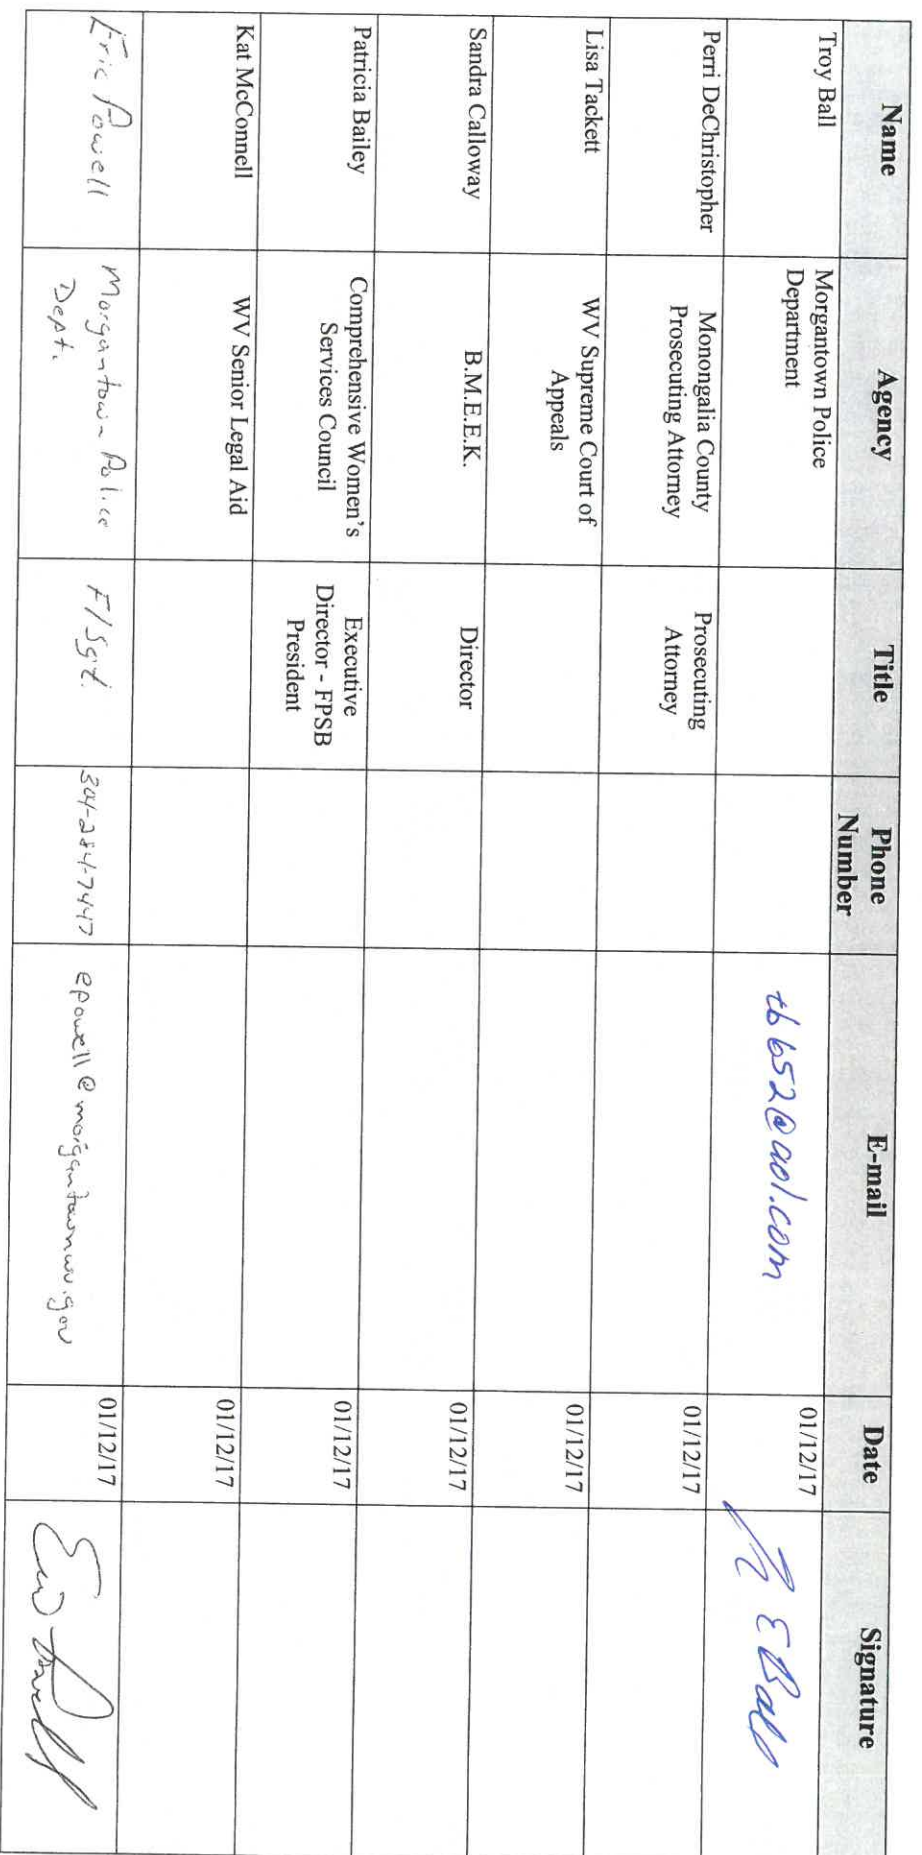 Name Agency Title Phone Number E-mail Date Signature
Troy Ball Morgantown Police Department tb652@aol.com 01/12/17
Perri DeChristopher Monongalia County Prosecuting Attorney Prosecuting Attorney 01/12/17
Lisa Tackett WV Supreme Court of Appeals 01/12/17
Sandra Calloway B.M.E.E.K. Director 01/12/17
Patricia Bailey Comprehensive Women's Services Council Executive Director - FPSB President 01/12/17
Kat McConnell WV Senior Legal Aid 01/12/17
Eric Powell Morgantown Police Dept. F/Sgt. 304-284-7447 epowell@morgantownwv.gov 01/12/17 Eric Powell